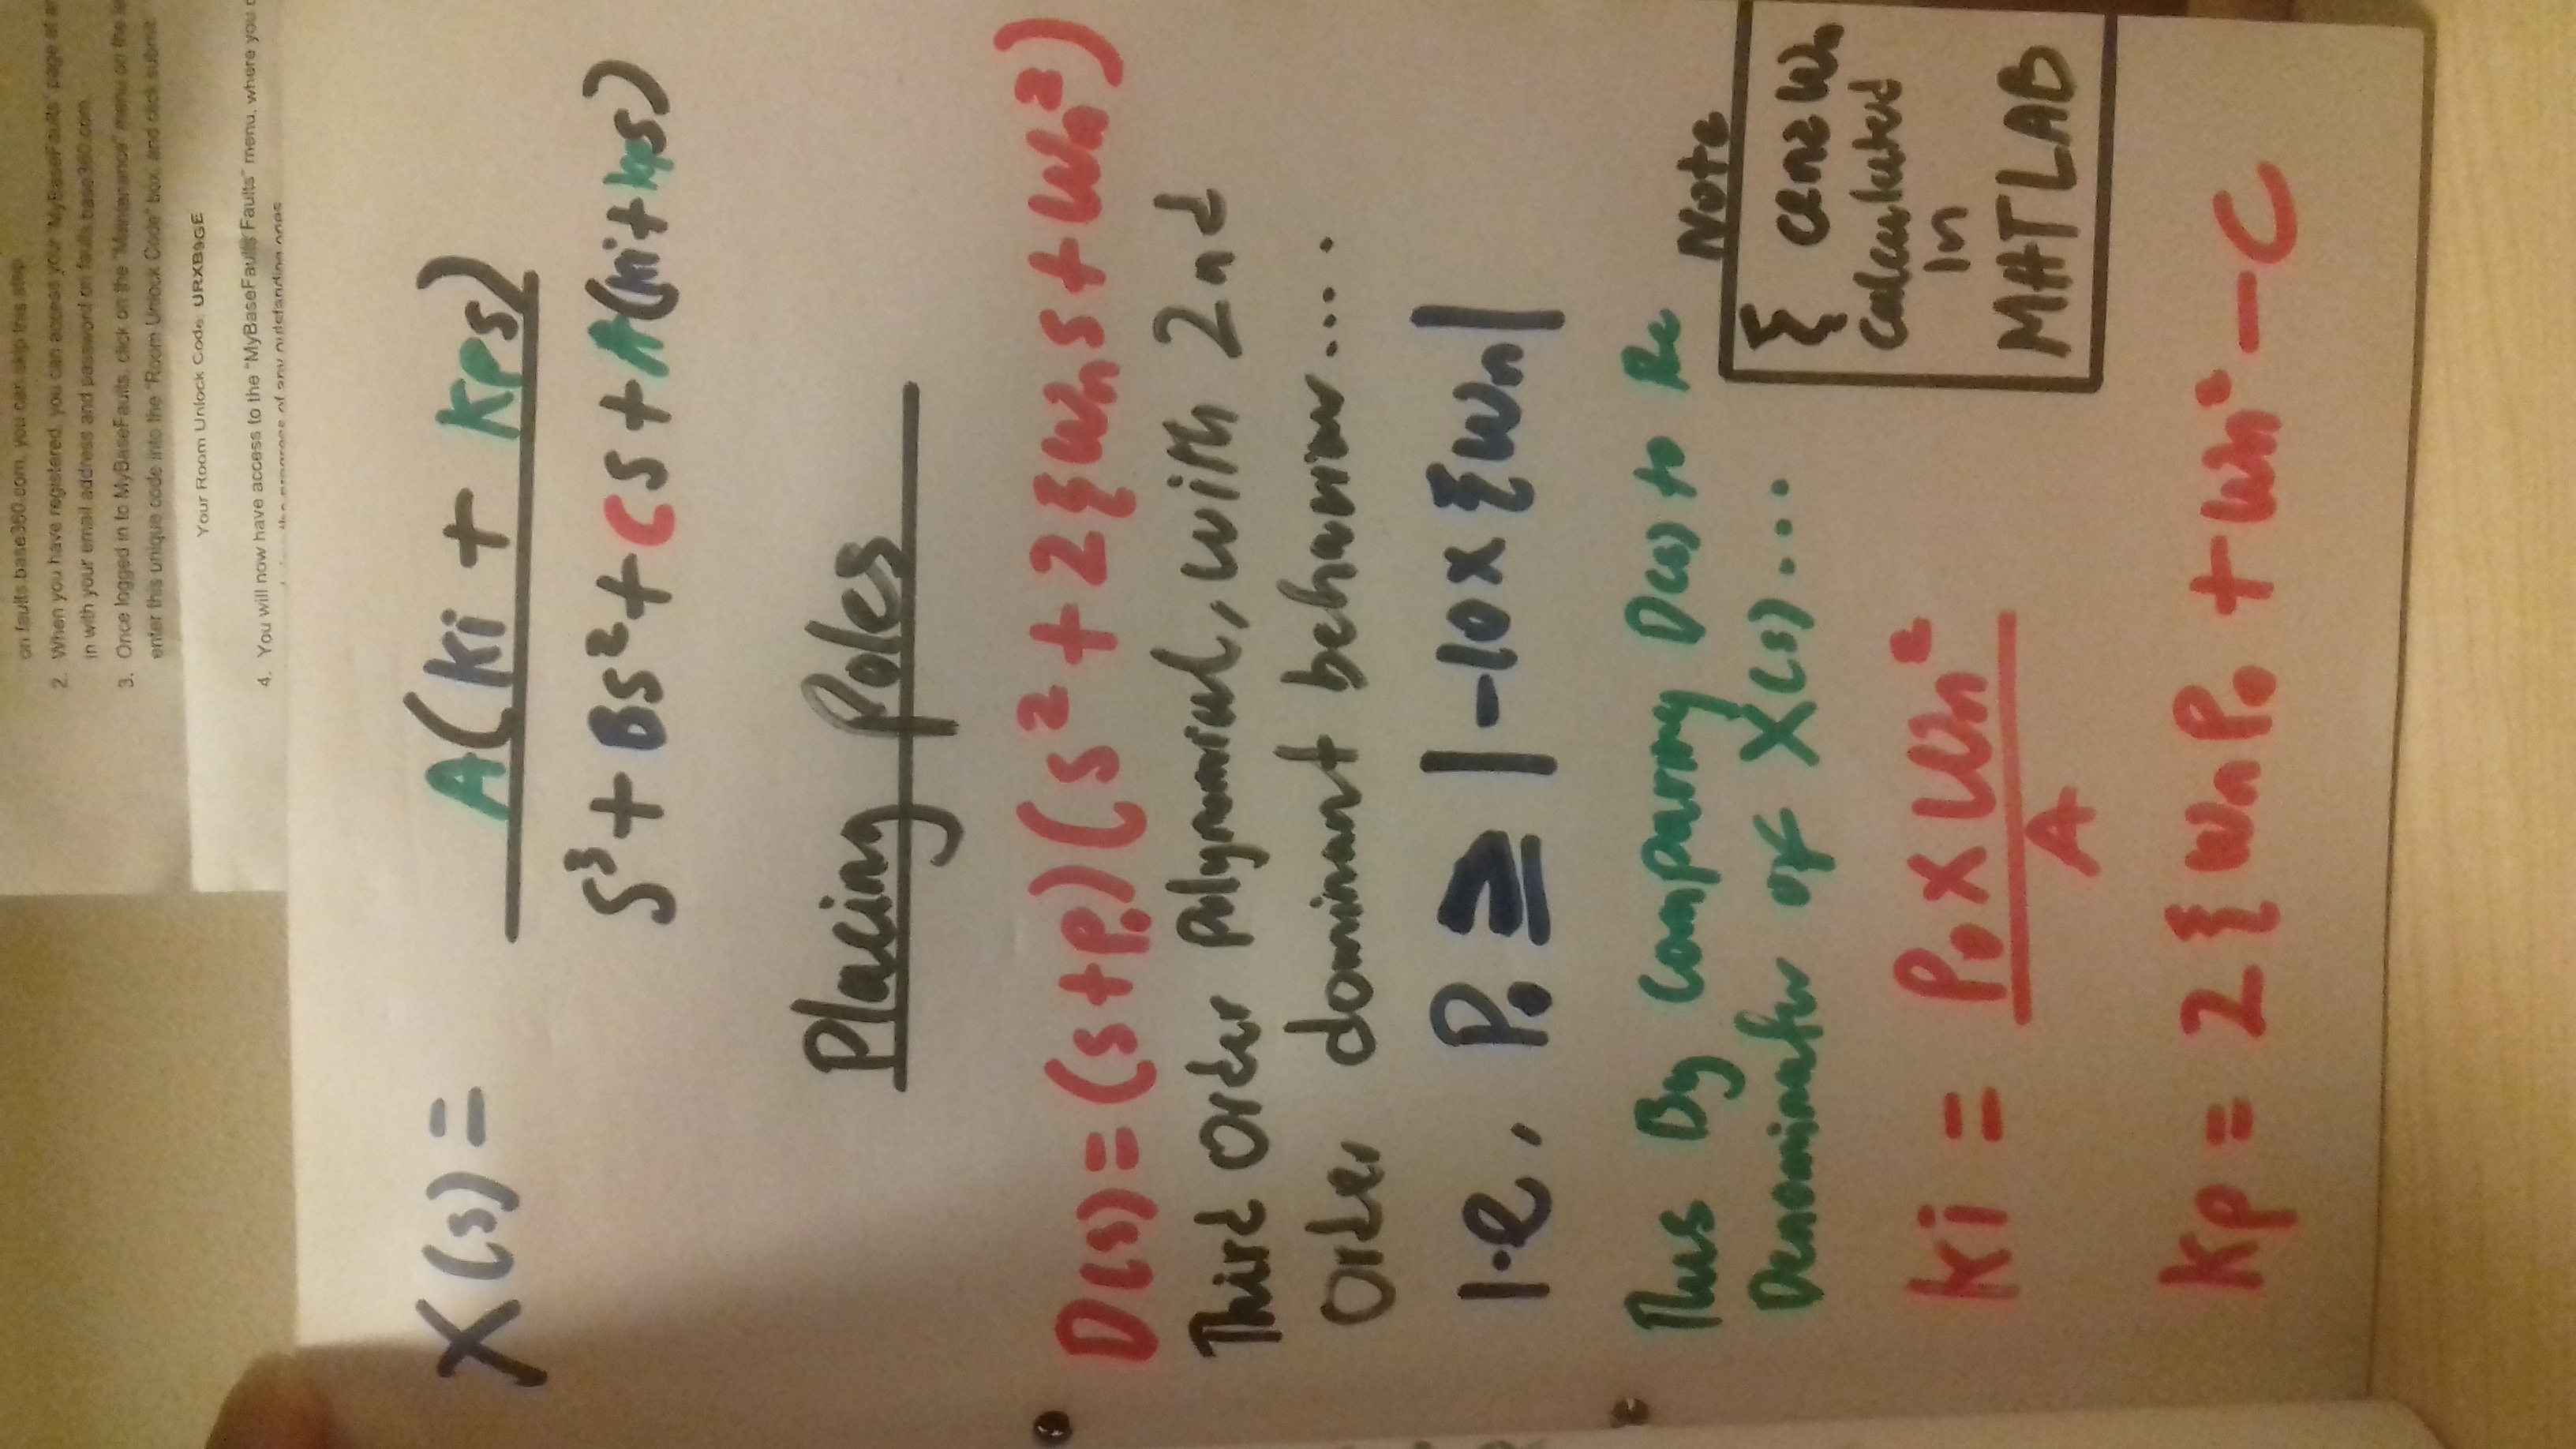 on faults.base360.com, you can skip this step.
2. When you have registered, you can access your "MyBaseFaults" page at
in with your email address and password on faults.base360.com.
3. Once logged in to MyBaseFaults, click on the "Maintenance" menu on the
enter this unique code into the "Room Unlock Code" box, and click submit.
Your Room Unlock Code: URXB9GE
4. You will now have access to the "MyBaseFaults Faults" menu, where you
the progress of any outstanding ones
X(s) = A(Ki + Kps)
S³ + Bs² + Cs + A(Ki + Kps)
Placing Poles
D(s) = (s+P₀)(s² + 2ξωns + ωn²)
Third Order Polynomial, with 2nd
Order dominant behaviour....
I.e. P₀ ≥ |-10 x ξωn|
Thus By Comparing D(s) to the
Denominator of X(s)...
Note
ξ and ωn
Calculated
In
MATLAB
Ki = P₀ x ωn²
A
Kp = 2ξωnP₀ + ωn² - C